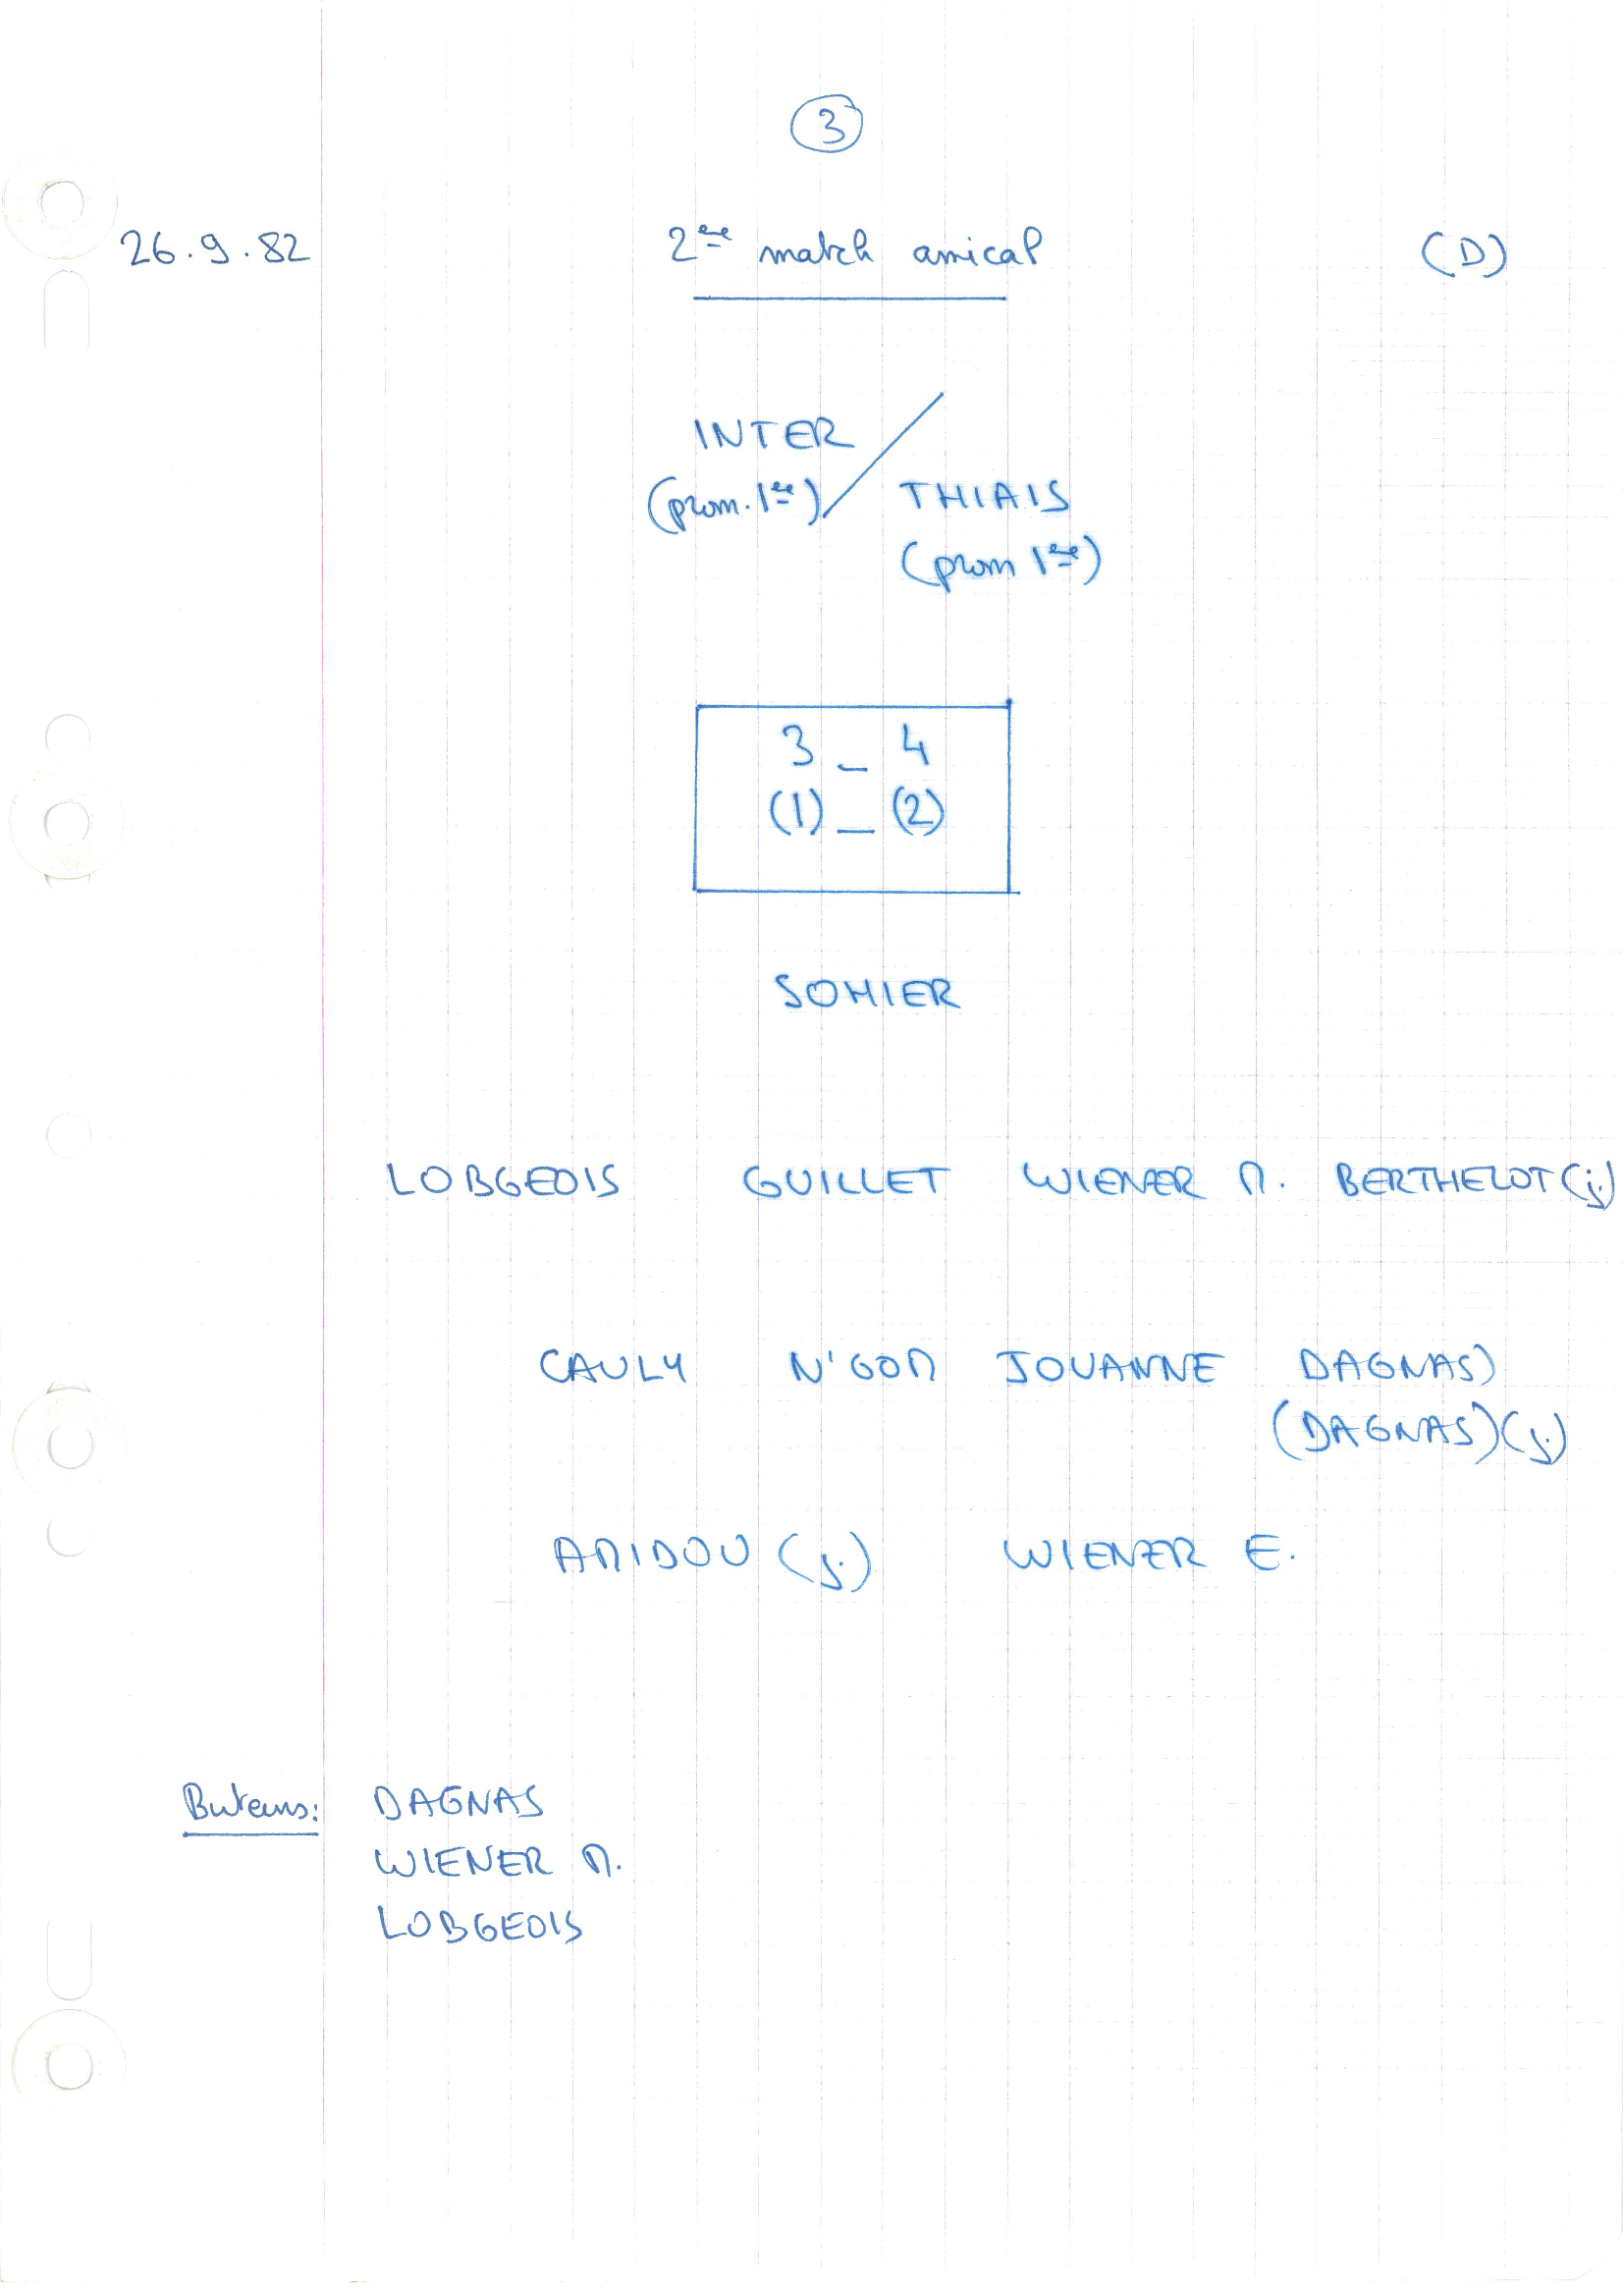 3
26.9.82 2ème match amical (D)
INTER
(prom. 1ère) / THIAIS
(prom 1ère)
3 - 4
(1) - (2)
SOHIER
LOBGEOIS GUILLET WIENER M. BERTHELOT (j)
CAULY N'GOM JOUANNE DAGNAS)
(DAGNAS) (j)
AMIDOU (j) WIENER E.
Buteurs: DAGNAS
WIENER M.
LOBGEOIS